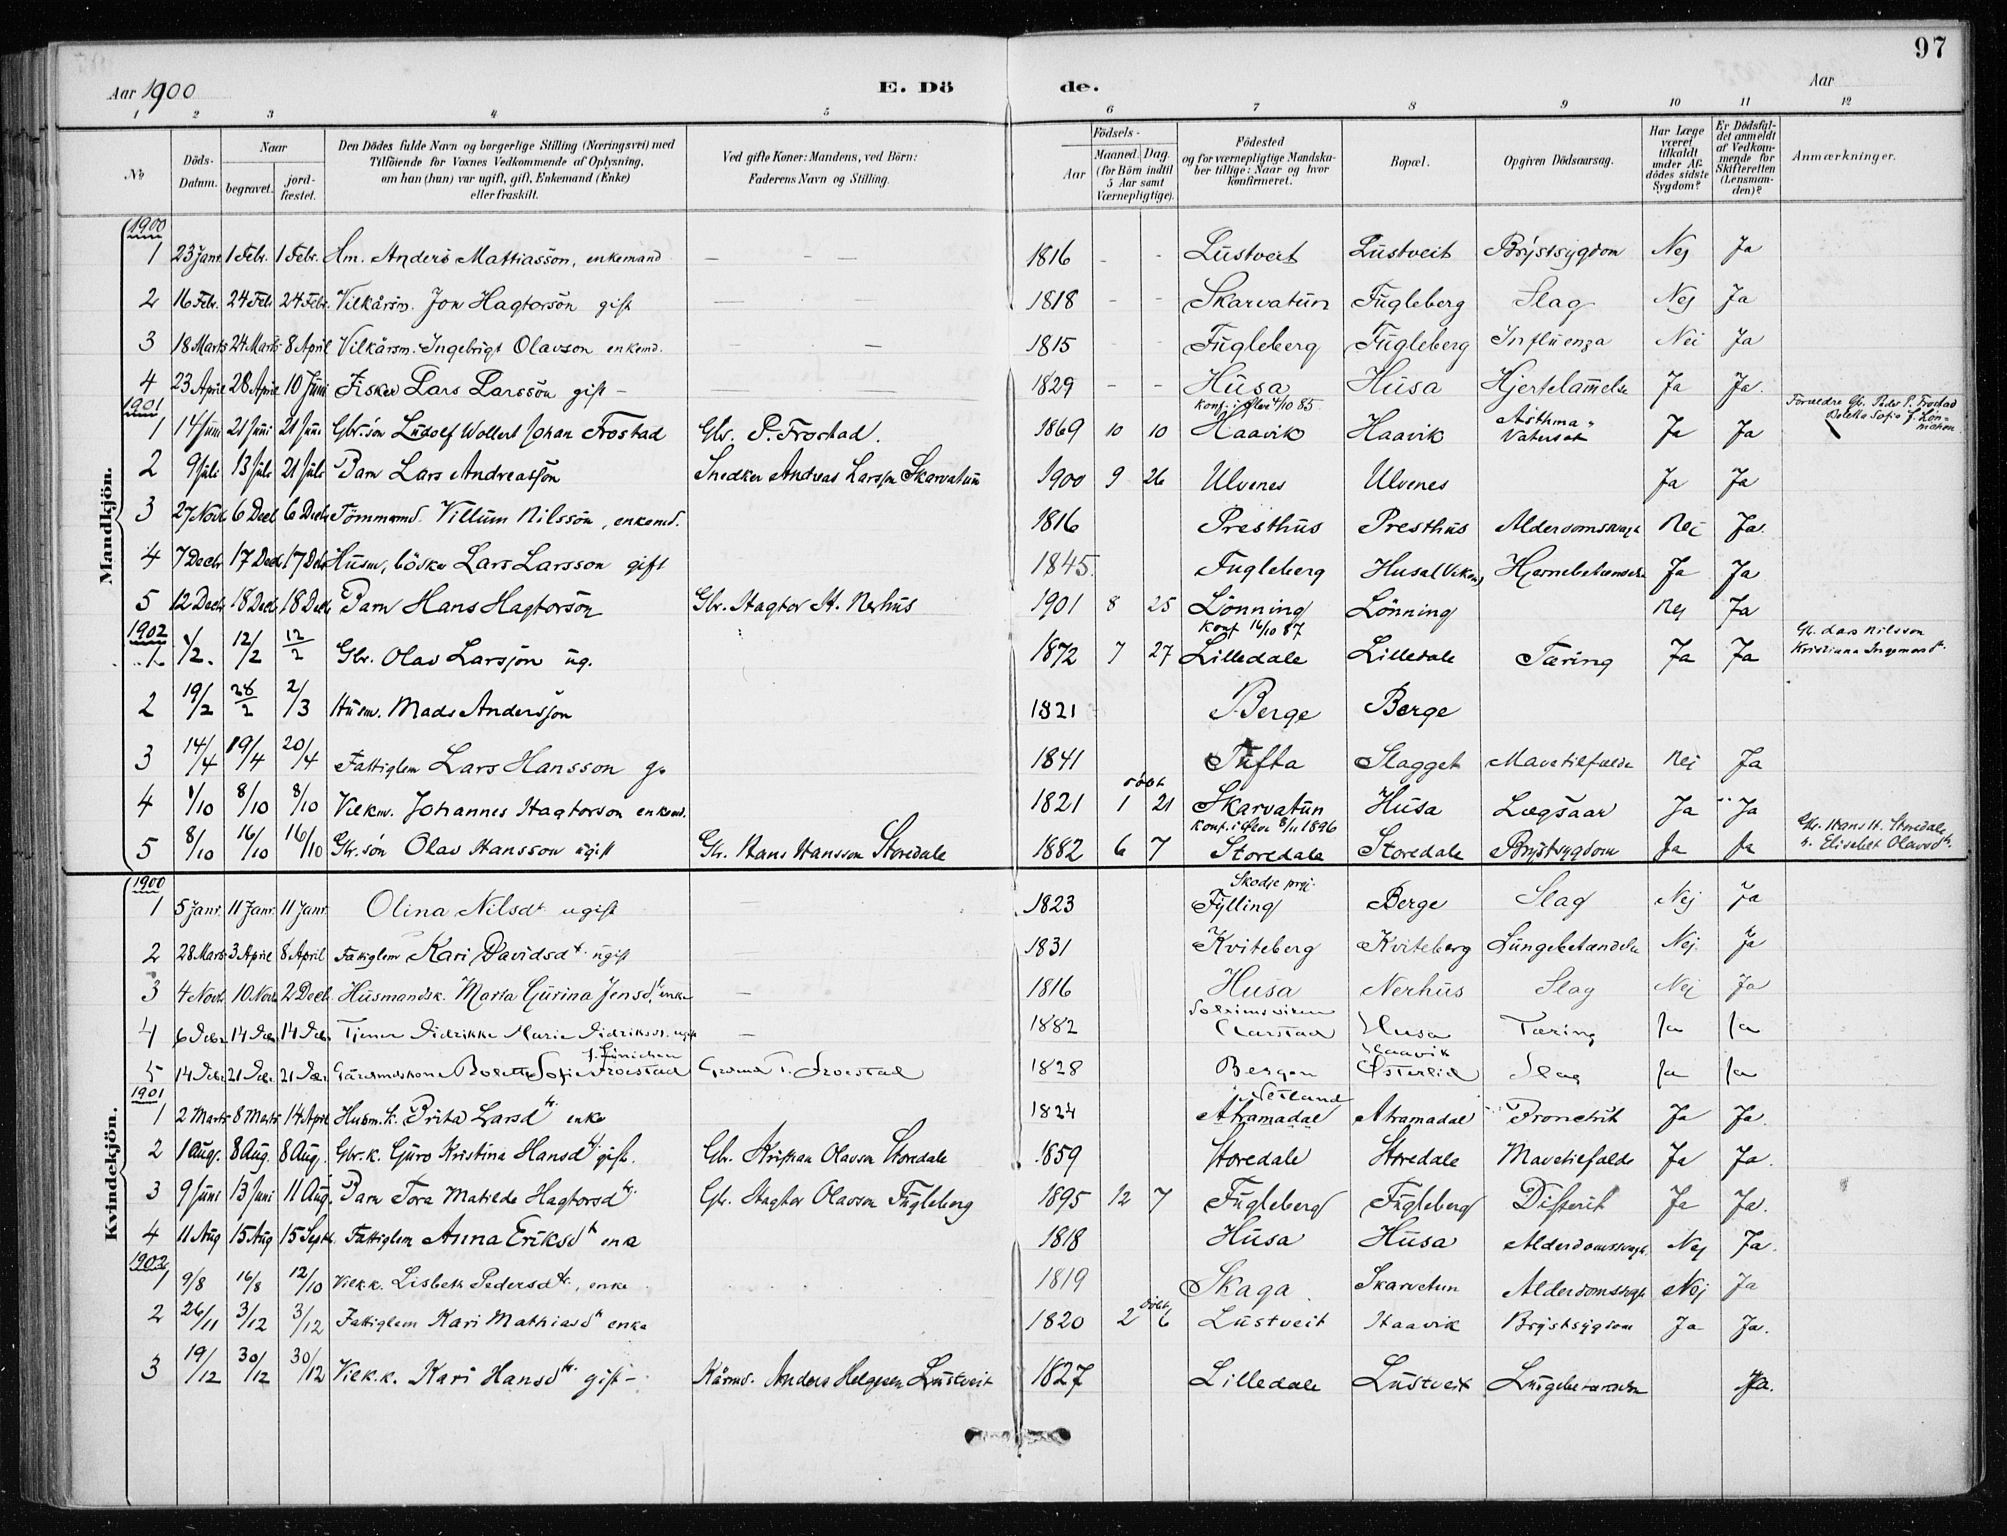 97
Aar 1900 E. Dö de. Aar
1 2 3 4 5 6 7 8 9 10 11 12
No Döds-Datum. Naar begravet. jordfæstet. Den Dödes fulde Navn og borgerlige Stilling (Næringsvei) med Tilföiende for Voxnes Vedkommende af Oplysning, om han (hun) var ugift, gift, Enkemand (Enke) eller fraskilt. Ved gifte Koner: Mandens, ved Börn: Faderens Navn og Stilling. Födsels- Aar Maaned. Dag. (for Börn indtil 5 Aar samt Værnepligtige). Födested og for værnepligtige Mandskaber tillige: Naar og hvor konfirmeret. Bopæl. Opgiven Dödsaarsag. Har Læge været tilkaldt under Afdödes sidste Sygdom? Er Dödsfaldet anmeldt af Vedkommende for Skifteretten (Lensmanden)? Anmærkninger.
Mandkjön.
1900
1 23 Janr. 1 Febr. 1 Febr. Hm. Anders Mattiasson, enkemand — — — 1816 - - Lustveit Lustveit Brystsygdom Nej Ja
2 16 Febr. 24 Febr. 24 Febr. Vilkårsm. Jon Hagtorsön gift — — 1818 - - Skarvatun Fugleberg Slag Nej Ja
3 18 Marts 24 Marts 8 April Vilkårsm. Ingebrigt Olavson enkemd. — — — 1815 - - Fugleberg Fugleberg Influenza Nei Ja
4 23 April 28 April 10 Juni Fisker Lars Larssön gift — — — 1829 - - Husa Husa Hjertelammelse Ja Ja.
1901
1 14 Juni 21 Juni 21 Juni Gbr.sön Ludolf Wollert Johan Frostad Gbr. P. Frostad. 1869 10 10 Konf. i Ølve 4/10 85. Haavik Haavik Asthma Vatersot Ja Ja Forældre Gb. Peder P. Frostad Boletta Sofie f.
2 9 Juli 13 Juli 21 Juli Barn Lars Andreassön Snedker Andreas Larssøn Skarvatun 1900 9 26 Ulvenes Ulvenes Ja Ja
3 27 Novb. 6 Decb. 6 Decb. Tömmermd. Villum Nilssön, enkemd. 1816 Presthus Presthus Alderdomssvagh. Nei Ja.
4 7 Decbr. 17 Decb. 17 Decb. Husm, bödker Lars Larsson gift 1845. Fugleberg Husa (Viken) Hjernebetændelse Ja Ja
5 12 Decb. 18 Decb. 18 Decb. Barn Hans Hagtorsön Gbr. Hagtor H. Nerhus 1901 8 25 Lönning Lönning Nej Ja
1902
1 1/2. 12/2 12/2 Gbr. Olav Larssön ug. 1872 7 27 Konf 16/10 87 Lilledale Lilledale Tæring Ja Ja Gb. Lars Nilsson Kristiana Ingemansdtr.
2 19/2 28/2 2/3 Husm. Mads Anderssön 1821 Berge Berge
3 14/4 19/4 20/4 Fattiglem Lars Hansson g. 1841 Tufta Slagget Mavetilfælde Nej Ja
4 1/10 8/10 8/10 Vilkm. Johannes Hagtorson enkemd. 1821 døbt 1 21 Skarvatun Husa Lægsaar Ja Ja
5 8/10 16/10 16/10 Gbr.sön Olav Hansson ugift Gbr. Hans Hansson Storedale 1882 6 7 Konf. i Ølve 8/11 1896 Storedale Storedale Brystsygdom Ja Ja Gbr. Hans H. Storedale h. Elisabet Olavsdtr.
Kvindekjön.
1900
1 5 Janr. 11 Janr. 11 Janr. Olina Nilsdt. ugift — 1823 Skodje prgj. Fylling Berge Slag Nej Ja
2 28 Marts 3 April 8 April Fattiglem Kari Davidsdt. ugift 1831 Kviteberg Kviteberg Lungebetændelse Nej. Ja
3 4 Novb. 10 Novb. 2 Decb. Husmandsk. Marta Gurina Jensd. enke — 1816 Husa Nerhus Slag Nej Ja
4 6 Debr. 14 Debr. 14 Debr. Tjener Didrikke Marie Didriksdt. ugift — 1882 Solheimsviken Aarstad Husa Tæring Ja Ja
5 14 Debr. 21 Debr. 21 Debr. Gårdmdskone Bolette Sofie Froestad Grdmd T. Froestad 1828 Bergen Haavik Østerlid Slag Ja Ja
1901
1 2 Marts 8 Marts 14 April Husm.k. Brita Larsdtr. enke 1824 Netland i Aramadal Aramadal Bronchit Ja Ja.
2 1 Aug. 8 Aug. 8 Aug. Gbr.k. Guro Kristina Hansdtr. gift. Gb. Kristian Olavson Storedale 1859 Storedale Storedale Mavetilfælde Ja Ja.
3 9 Juni 13 Juni 11 Aug. Barn Tora Matilde Hagtorsdtr. Gb. Hagtor Olavson Fugleberg 1895 12 7 Fugleberg Fugleberg Difterit Ja Ja.
4 11 Aug 15 Aug 15 Septb. Fattiglem Anna Eriksdt enke 1818 Husa Husa Alderdomssvagh. Nej Ja.
1902
1 9/8 16/8 12/10 Vilk.k. Lisbeth Pedersdtr., enke 1819 Skaga Skarvatun Alderdomssvagh Nej Ja
2 26/11 3/12 3/12 Fattiglem Kari Mathiasdt enke 1820 døbt 2 6 Lustveit Haavik Brystsygdom Ja Ja.
3 19/12 30/12 30/12 Vilk.k. Kari Hansdtr. gift — Kårmd. Anders Helgesen Lustveit 1827 Lilledale Lustveit Lungebetændelse Ja.